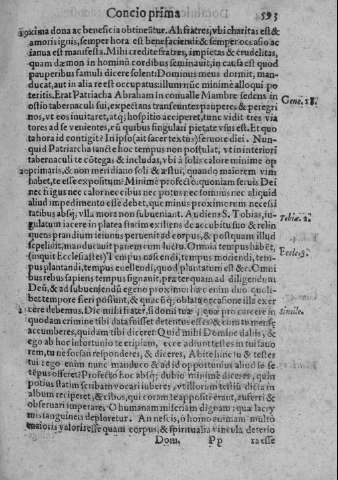 Concio prima 593
maxima dona ac beneficia obtinent. Ah fratres, vbi charitas est &
amoris ignis, semper hora est benefaciendi & semper occasio ac
ianua est manifesta. Mihi credite fratres, impietas & crudelitas,
quam dæmon in hominũ cordibus seminauit, in causa est quod
pauperibus famuli dicere solent: Dominus meus dormit, man-
ducat, aut in alia re est occupatus: illum nũc minimè alloqui po
teritis. Erat Patriarcha Abraham in conualle Mambre sedens in Gene. 18.
ostio tabernaculi sui, expectans transeuntes pauperes & peregri
nos, vt eos inuitaret, atq; hospitio acciperet, tunc vidit tres via
tores ad se venientes, cũ quibus singulari pietate vsus est. Et quo
ta hora id contigit? In ipso (ait sacer textus) feruore diei. Nun-
quid Patriarcha tunc te hoc tempus non postulat, vt in interiori
tabernaculi te cõtegas & includas, vbi à solis calore minimè op
primaris, & non meridiano soli & æstui, quando maiorem vim
habet, te esse expositum? Minimè profectò: quoniam seruis Dei
nec frigus nec calor, nec cibus nec potus, nec somnus nec aliquid
aliud impedimento esse debet, quo minus proximorem necessi
tatibus absq; vlla mora non subueniant. Audiens S. Tobias, iu- Tobiæ. 2.
gulatum iacere in platea statim exiliens de accubitu suo & relin
quens prandium ieiunus peruenit ad corpus, & postquam illud
sepeliuit, manducauit panem cum luctu. Omnis tempus habet,
(inquit Ecclesiastes) Tempus nascendi, tempus moriendi, tem- Eccles. 3.
pus plantandi, tempus euellendi, quod plantatum est &c. Omni
bus rebus sapiens tempus signauit, præterquam ad diligendum
Deũ, & ad subueniendũ egeno proximo: hæc enim duo quoli-
bet tempore fieri possunt, & quacũq; oblata occasione illa exer
cere debemus. Dic mihi frater, si domi tuæ, quæ pro carcere in Simile.
quodam crimine tibi data fuisset detentus esses & cum in mensa
accumberes, quidam tibi diceret: Quid mihi Domine dabis, &
ego ab hoc infortunio te eripiam, ecce adiunt testes in tui fauo
rem, tu ne forsan responderes, & diceres, Abite hinc tu & testes
tui: ego enim nunc manduco & ad id opportunius aliud se se
tẽpus offeret? Profectò hoc absq; dubio minimè diceres, quin
potius statim scribam vocari iuberes, vt illorum testiũ dicta in
album reciperet, & cibos, qui coram te appositi erant, auferri &
obseruari imperares. O humanam miseriam dignam quæ lacry
mis sanguineis deploretur. An nescis, ò homo eximam multo
maioris valoris esse quam corpus, & spiritualia vincula deterio
Dom. Pp ra esse